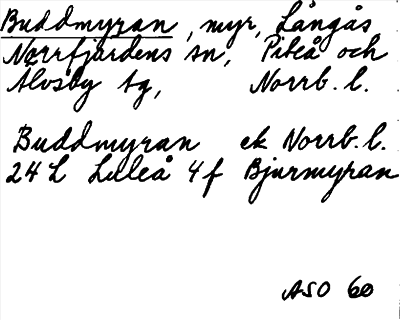 Buddmyran, myr, Långås,
Norrfjärdens sn, Piteå och
Älvsby tg, Norrb. l.
Buddmyran ek Norrb. l.
24 L Luleå 4f Bjurmyran
ASO 60